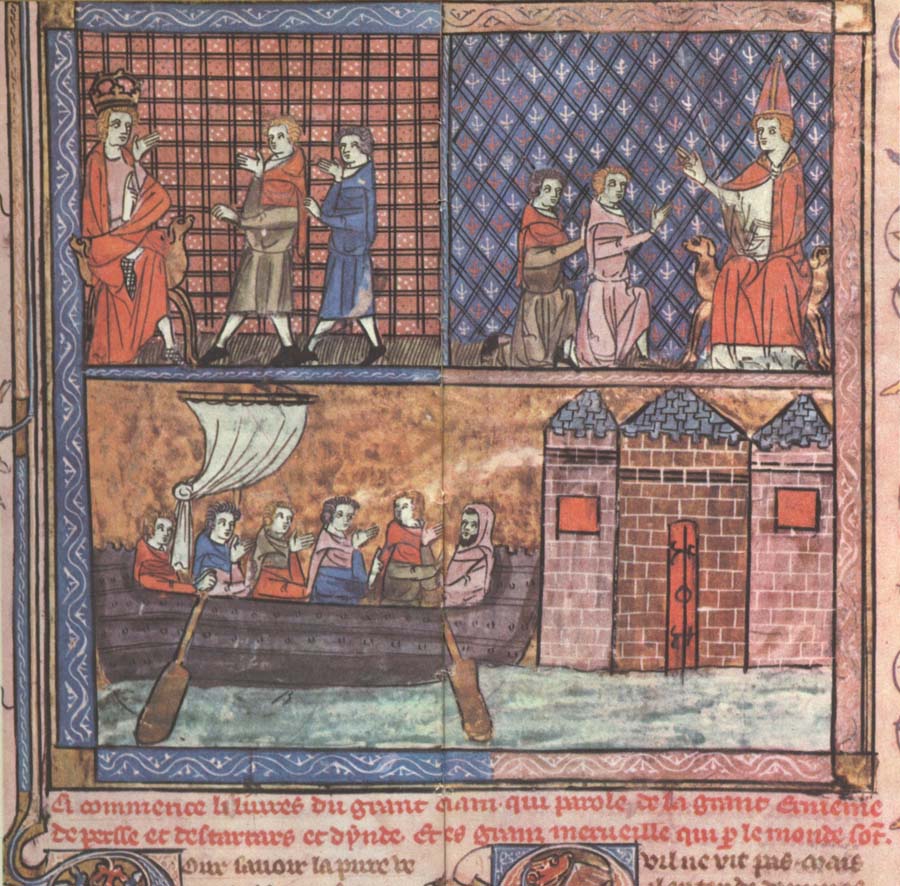 Ci commence li livres du grant caam qui parole de la grant ermenie
de persse et des tartars et dynde. Et des granz merveille qui p le monde sont.
Pour savoir la pure ve
vil ne vit pas. mais